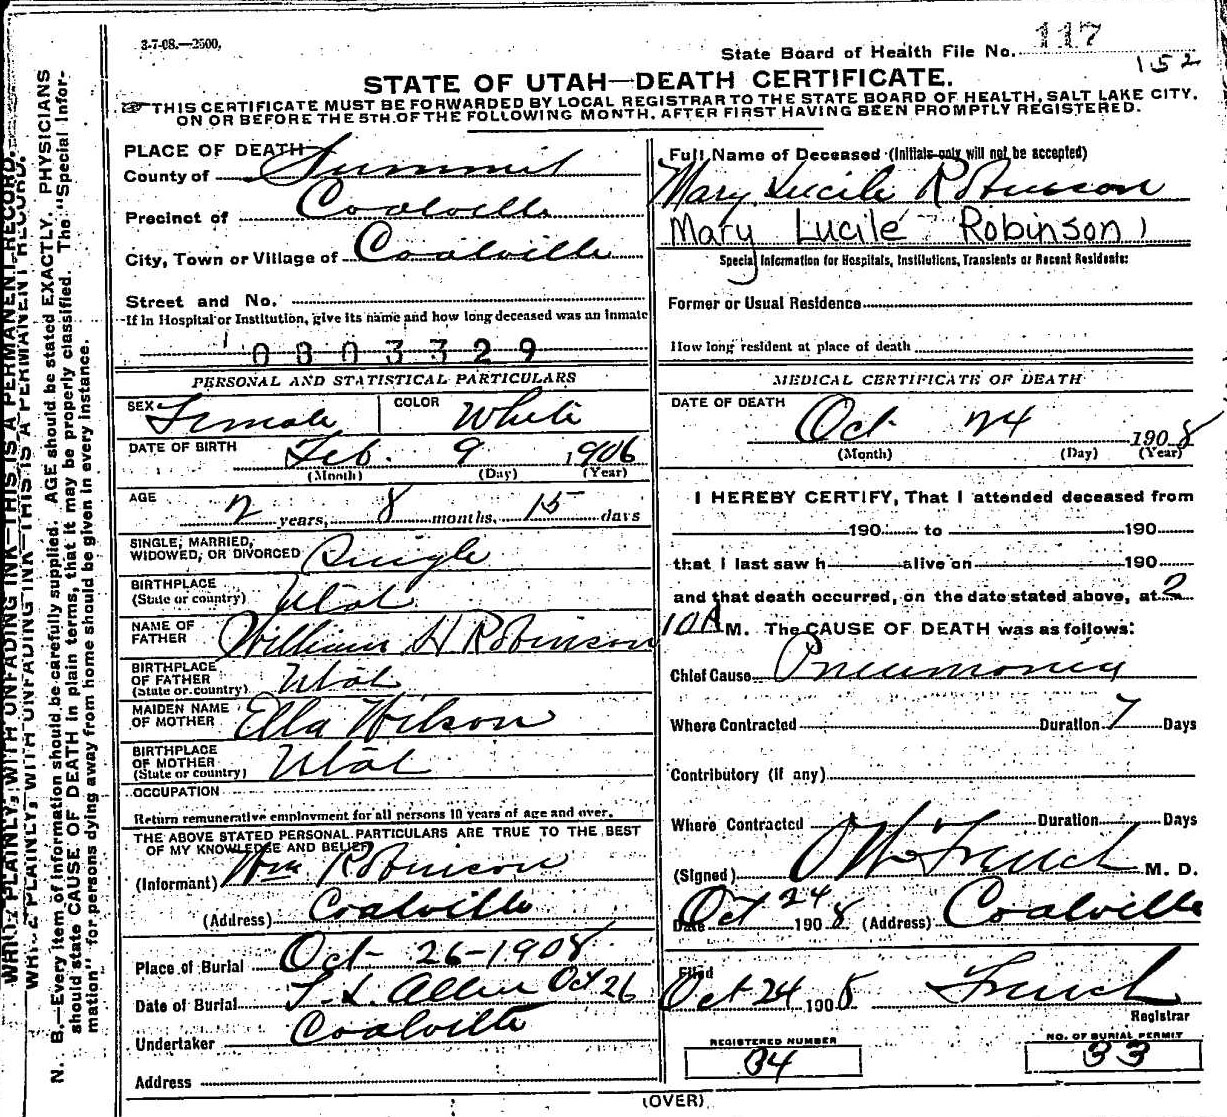 3-7-08.—2500.
State Board of Health File No. 117
152
STATE OF UTAH—DEATH CERTIFICATE.
THIS CERTIFICATE MUST BE FORWARDED BY LOCAL REGISTRAR TO THE STATE BOARD OF HEALTH, SALT LAKE CITY,
ON OR BEFORE THE 5TH. OF THE FOLLOWING MONTH, AFTER FIRST HAVING BEEN PROMPTLY REGISTERED.
PLACE OF DEATH
County of Summit
Precinct of Coalville
City, Town or Village of Coalville
Street and No.
If in Hospital or Institution, give its name and how long deceased was an inmate
0803329
PERSONAL AND STATISTICAL PARTICULARS
SEX Female COLOR White
DATE OF BIRTH Feb. 9 1906
(Month) (Day) (Year)
AGE 2 years, 8 months, 15 days
SINGLE, MARRIED,
WIDOWED, OR DIVORCED Single
BIRTHPLACE
(State or country) Utah
NAME OF
FATHER William H Robinson
BIRTHPLACE
OF FATHER
(State or country) Utah
MAIDEN NAME
OF MOTHER Ella Wilson
BIRTHPLACE
OF MOTHER
(State or country) Utah
OCCUPATION
Return remunerative employment for all persons 10 years of age and over.
THE ABOVE STATED PERSONAL PARTICULARS ARE TRUE TO THE BEST
OF MY KNOWLEDGE AND BELIEF
(Informant) Wm Robinson
(Address) Coalville
Place of Burial Oct- 26-1908
Date of Burial Allen Oct 26
Undertaker Coalville
Address
Full Name of Deceased (Initials only will not be accepted)
Mary Lucile Robinson
Mary Lucile Robinson
Special Information for Hospitals, Institutions, Transients or Recent Residents:
Former or Usual Residence
How long resident at place of death
MEDICAL CERTIFICATE OF DEATH
DATE OF DEATH
Oct 24 1908
(Month) (Day) (Year)
I HEREBY CERTIFY, That I attended deceased from
190 to 190
that I last saw h alive on 190
and that death occurred, on the date stated above, at 2
10 A M. The CAUSE OF DEATH was as follows:
Chief Cause Pneumonia
Where Contracted Duration 7 Days
Contributory (if any)
Where Contracted Duration Days
(Signed) French M. D.
Oct 24
Date 1908 (Address) Coalville
Filed
Oct 24 1908 French
Registrar
REGISTERED NUMBER
34
NO. OF BURIAL PERMIT
33
(OVER)
WRITE PLAINLY, WITH UNFADING INK—THIS IS A PERMANENT RECORD.
WRITE PLAINLY, WITH UNFADING INK—THIS IS A PERMANENT RECORD.
N. B.—Every item of information should be carefully supplied. AGE should be stated EXACTLY. PHYSICIANS
should state CAUSE OF DEATH in plain terms, that it may be properly classified. The "Special Infor-
mation" for persons dying away from home should be given in every instance.